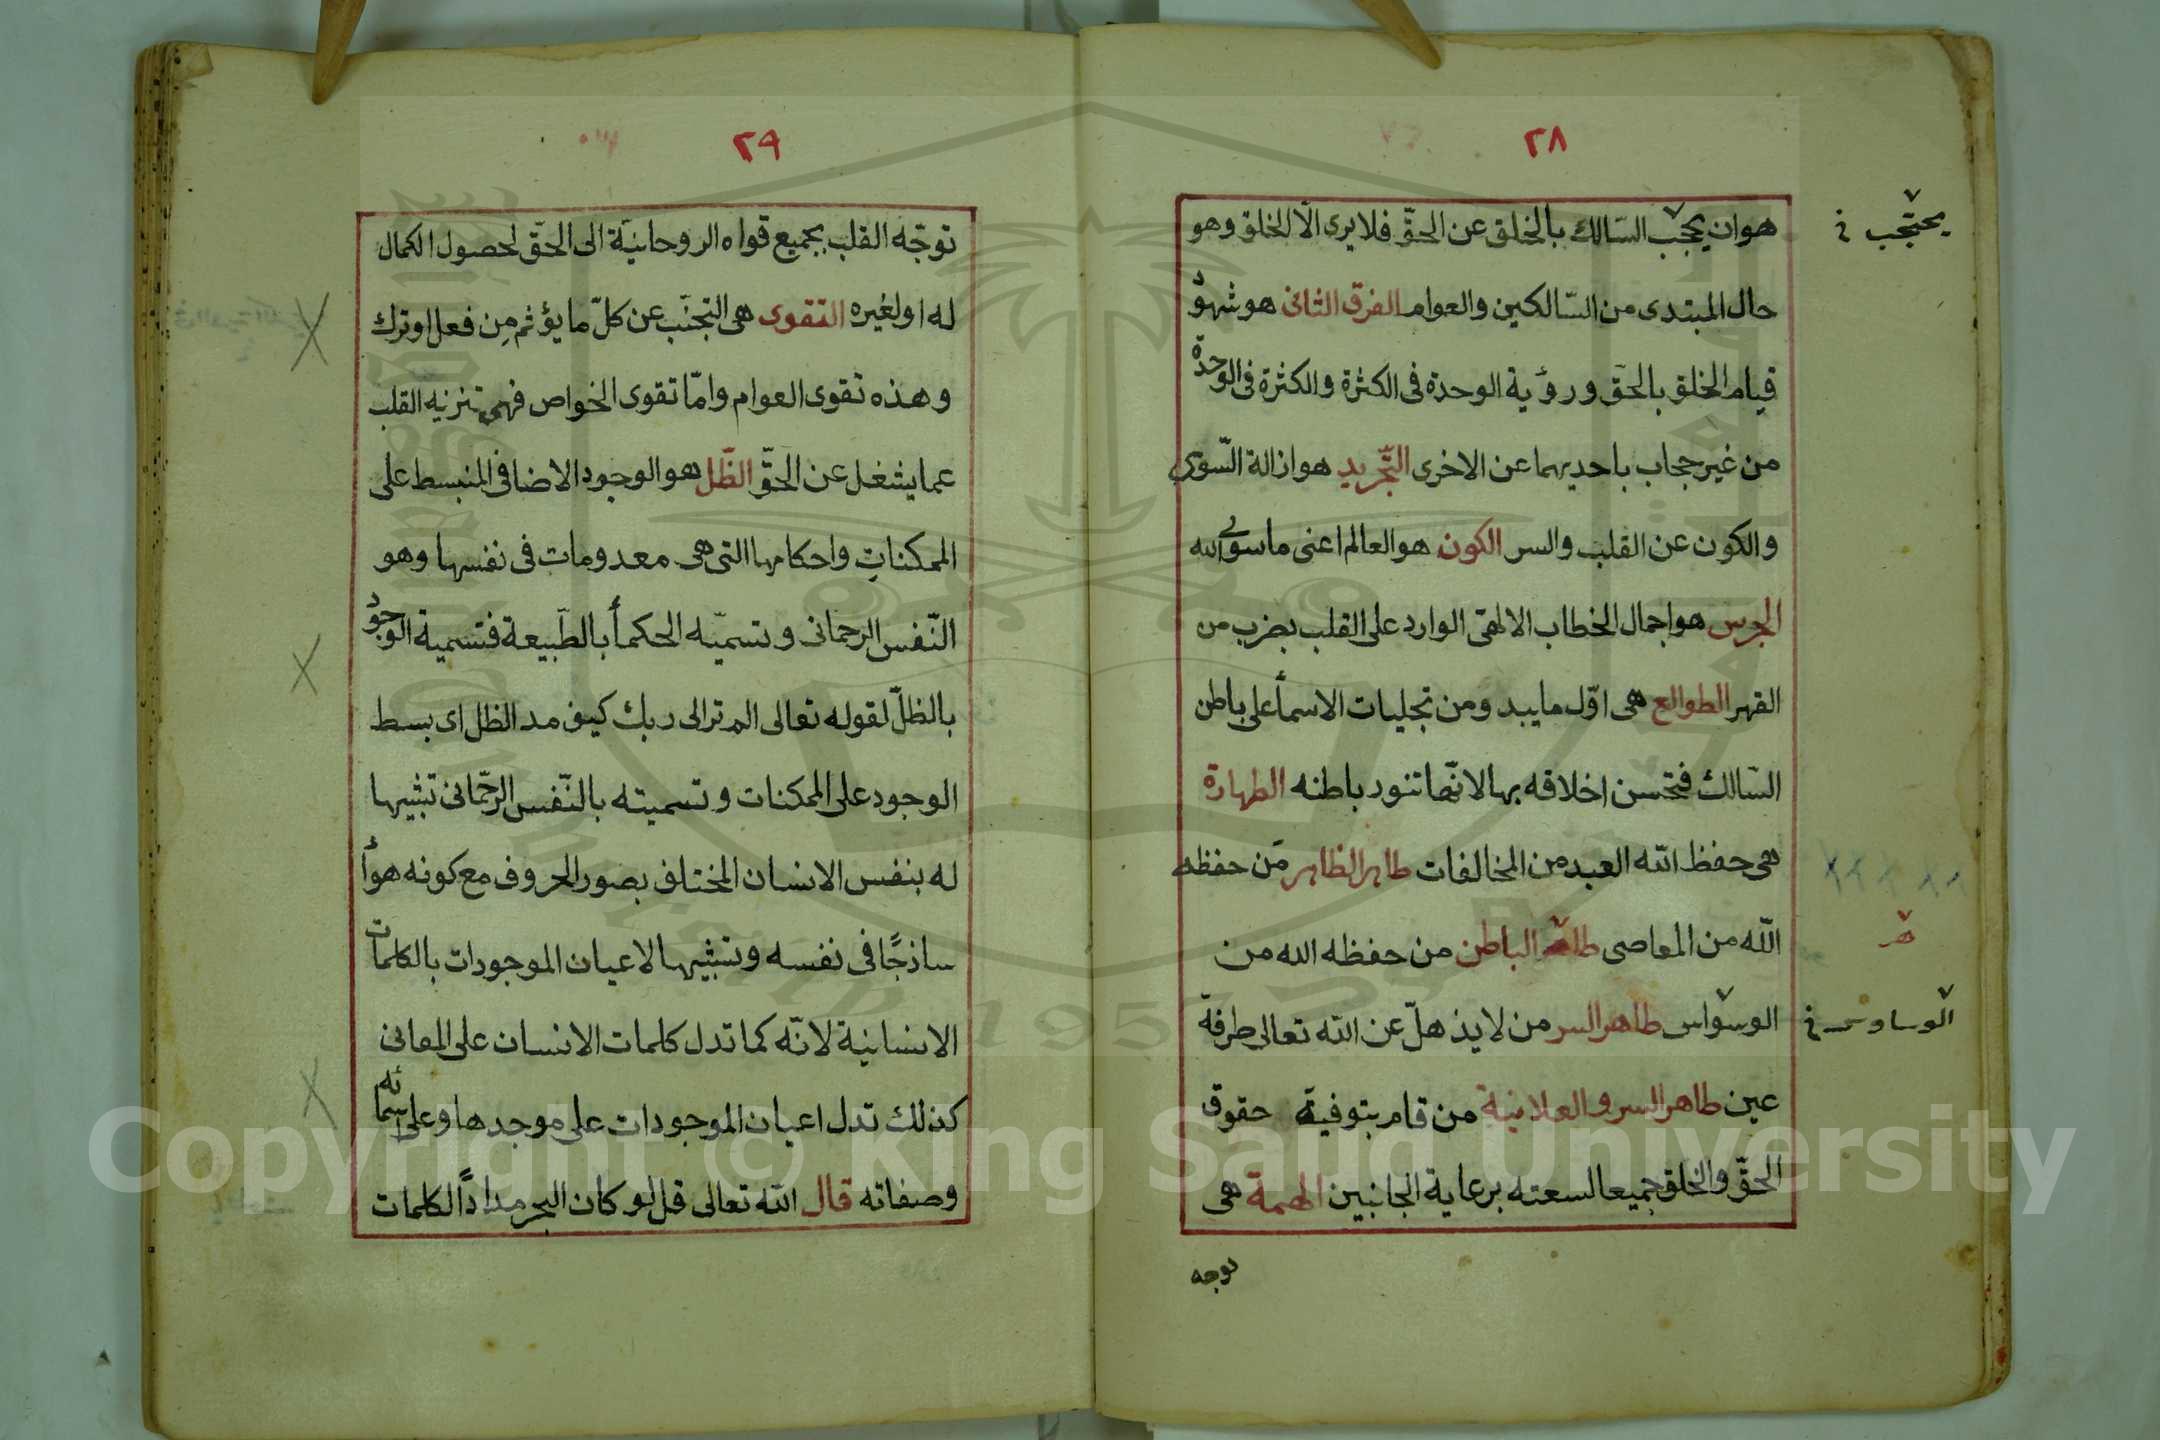 ٢٨
هو ان يحجب السّالك بالخلق عن الحقّ فلا يرى الّا الخلق وهو
يحتجب في
حال المبتدى من السّالكين والعوام الفرق الثانى هو شهود
قيام الخلق بالحق ورؤية الوحدة فى الكثرة والكثرة فى الوحدة
من غير حجاب باحديهما عن الاخرى التّجريد هو ازالة السّوى
والكون عن القلب والسر الكون هو العالم اعنى ما سوى الله
الجرس هو اجمال الخطاب الالهى الوارد على القلب بضرب من
القهر الطوالع هى اوّل ما يبدو من تجليات الاسمأ على باطن
السّالك فتحسن اخلاقه بها لانّها تنور باطنه الطهارة
هى حفظ الله العبد من المخالفات طاهر الظاهر من حفظه
الله من المعاصى طاهر الباطن من حفظه الله من
هر
الوسواس طاهر السر من لا يذهلّ عن الله تعالى طرفة
الوساوس في
عين طاهر السر والعلانية من قام بتوفية حقوق
الحقّ والخلق جميعا لسعته برعاية الجانبين الهمة هى
توجه
٢٩
توجّه القلب بجميع قواه الروحانيّة الى الحقّ لحصول الكمال
له او لغيره التقوى هى التجنّب عن كلّ ما يؤثم مِن فعل او ترك
وهذه تقوى العوام وامّا تقوى الخواص فهى تنزيه القلب
عما يشغل عن الحقّ الظّل هو الوجود الاضافى المنبسط على
الممكناتِ واحكامها التى هى معدومات فى نفسها وهو
النّفس الرحمانى وتسميّه الحكمأ بالطّبيعة فتسمية الوجود
بالظلّ لقوله تعالى الم تر الى ربك كيف مد الظل اى بسط
الوجود على الممكنات وتسميته بالنّفس الرّحمانى تشبيها
له بنفس الانسان المختلف بصور الحروف مع كونه هوأ
ساذجًا فى نفسه وتشبيها لاعيان الموجودات بالكلمات
الانسانية لانّه كما تدل كلمات الانسان على المعانى
كذلك تدل اعيان الموجودات على موجدها وعلى اسمائه
وصفاته قال الله تعالى قل لو كان البحر مدادًا لكلمات
Copyright © King Saud University